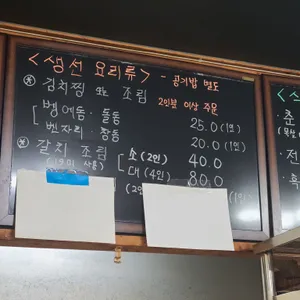 <생선 요리류> - 공기밥 별도
※ 김치찜 또는 조림
2인분 이상 주문
[ 뱅에돔·돌돔 25.0 (1인)
벤자리·참돔 20.0 (1인)
※ 갈치 조림 [ 소 (2인) 40.0
대 (4인) 80.0
(2인
<
·춘
·전
·흑